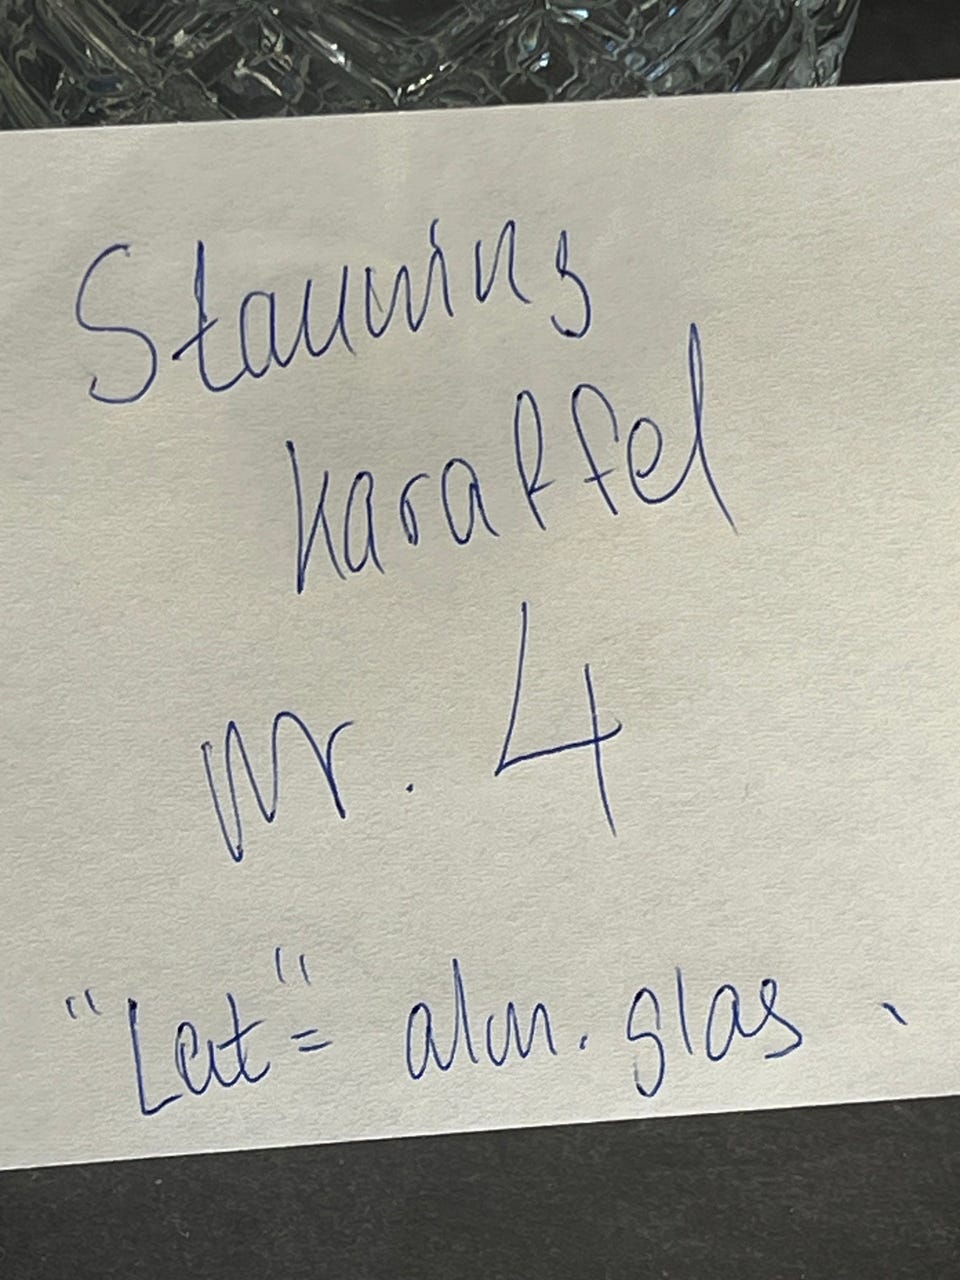 Stauning
karaffel
nr. 4
"Let" = alm. glas